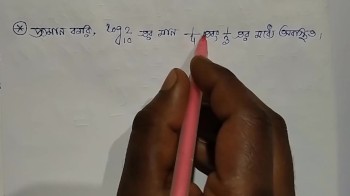 * প্রমান করি, log₁₀2 এর মান 1/4 এবং 1/3 এর মধ্যে অবস্থিত।